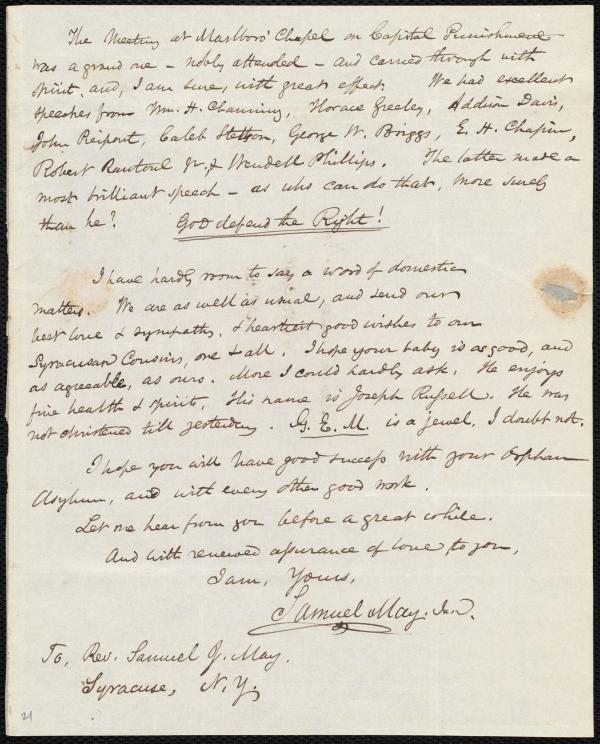 The Meeting at Marlboro' Chapel on Capital Punishment
was a grand one – nobly attended – and carried through with
spirit, and, I am sure, with great effect. We had excellent
speeches from Wm. H. Channing, Horace Greeley, Addison Davis,
John Pierpont, Caleb Stetson, George N. Briggs, E. H. Chapin,
Robert Rantoul Jr. & Wendell Phillips. The latter made a
most brilliant speech – as who can do that, more surely
than he? God defend the Right!
I have hardly room to say a word of domestic
matters. We are as well as usual, and send our
best love & sympathy, & heartiest good wishes to our
Syracusan Cousins, one & all. I hope your baby is as good, and
as agreeable, as ours. More I could hardly ask. He enjoys
fine health & spirits. His name is Joseph Russell. He was
not christened till yesterday. G. E. M. is a jewel, I doubt not.
I hope you will have good success with your Orphan
Asylum, and with every other good work.
Let me hear from you before a great while.
And with renewed assurance of love to you,
I am, Yours,
Samuel May, Jun.
To, Rev. Samuel J. May.
Syracuse, N. Y.
21